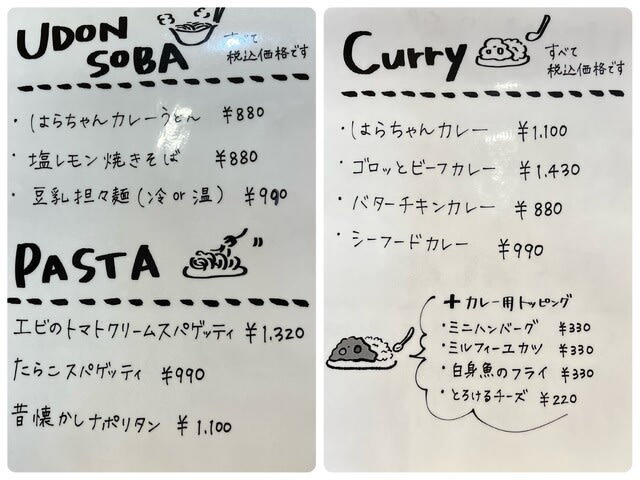 UDON
SOBA
すべて
税込価格です
・はらちゃんカレーうどん ¥880
・塩レモン焼きそば ¥880
・豆乳担々麺(冷or温) ¥990
PASTA
エビのトマトクリームスパゲッティ ¥1.320
たらこスパゲッティ ¥990
昔懐かしナポリタン ¥1.100
Curry
すべて
税込価格です
・はらちゃんカレー ¥1.100
・ゴロッとビーフカレー ¥1.430
・バターチキンカレー ¥880
・シーフードカレー ¥990
+カレー用トッピング
・ミニハンバーグ ¥330
・ミルフィーユカツ ¥330
・白身魚のフライ ¥330
・とろけるチーズ ¥220